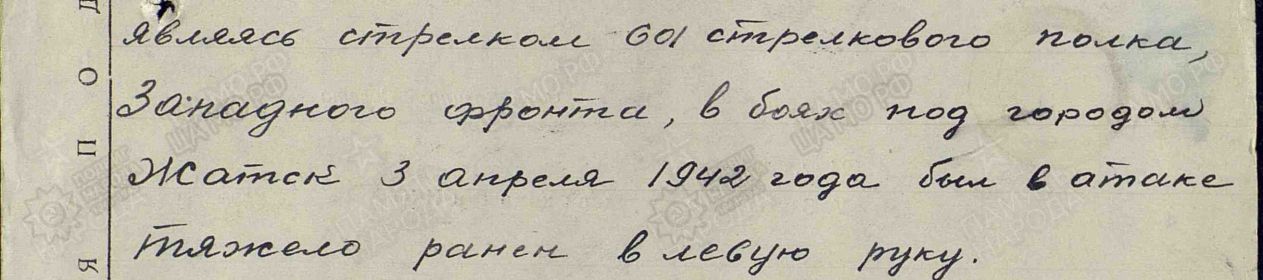 являясь стрелком 601 стрелкового полка,
Западного фронта, в боях под городом
Жатск 3 апреля 1942 года был в атаке
тяжело ранен в левую руку.